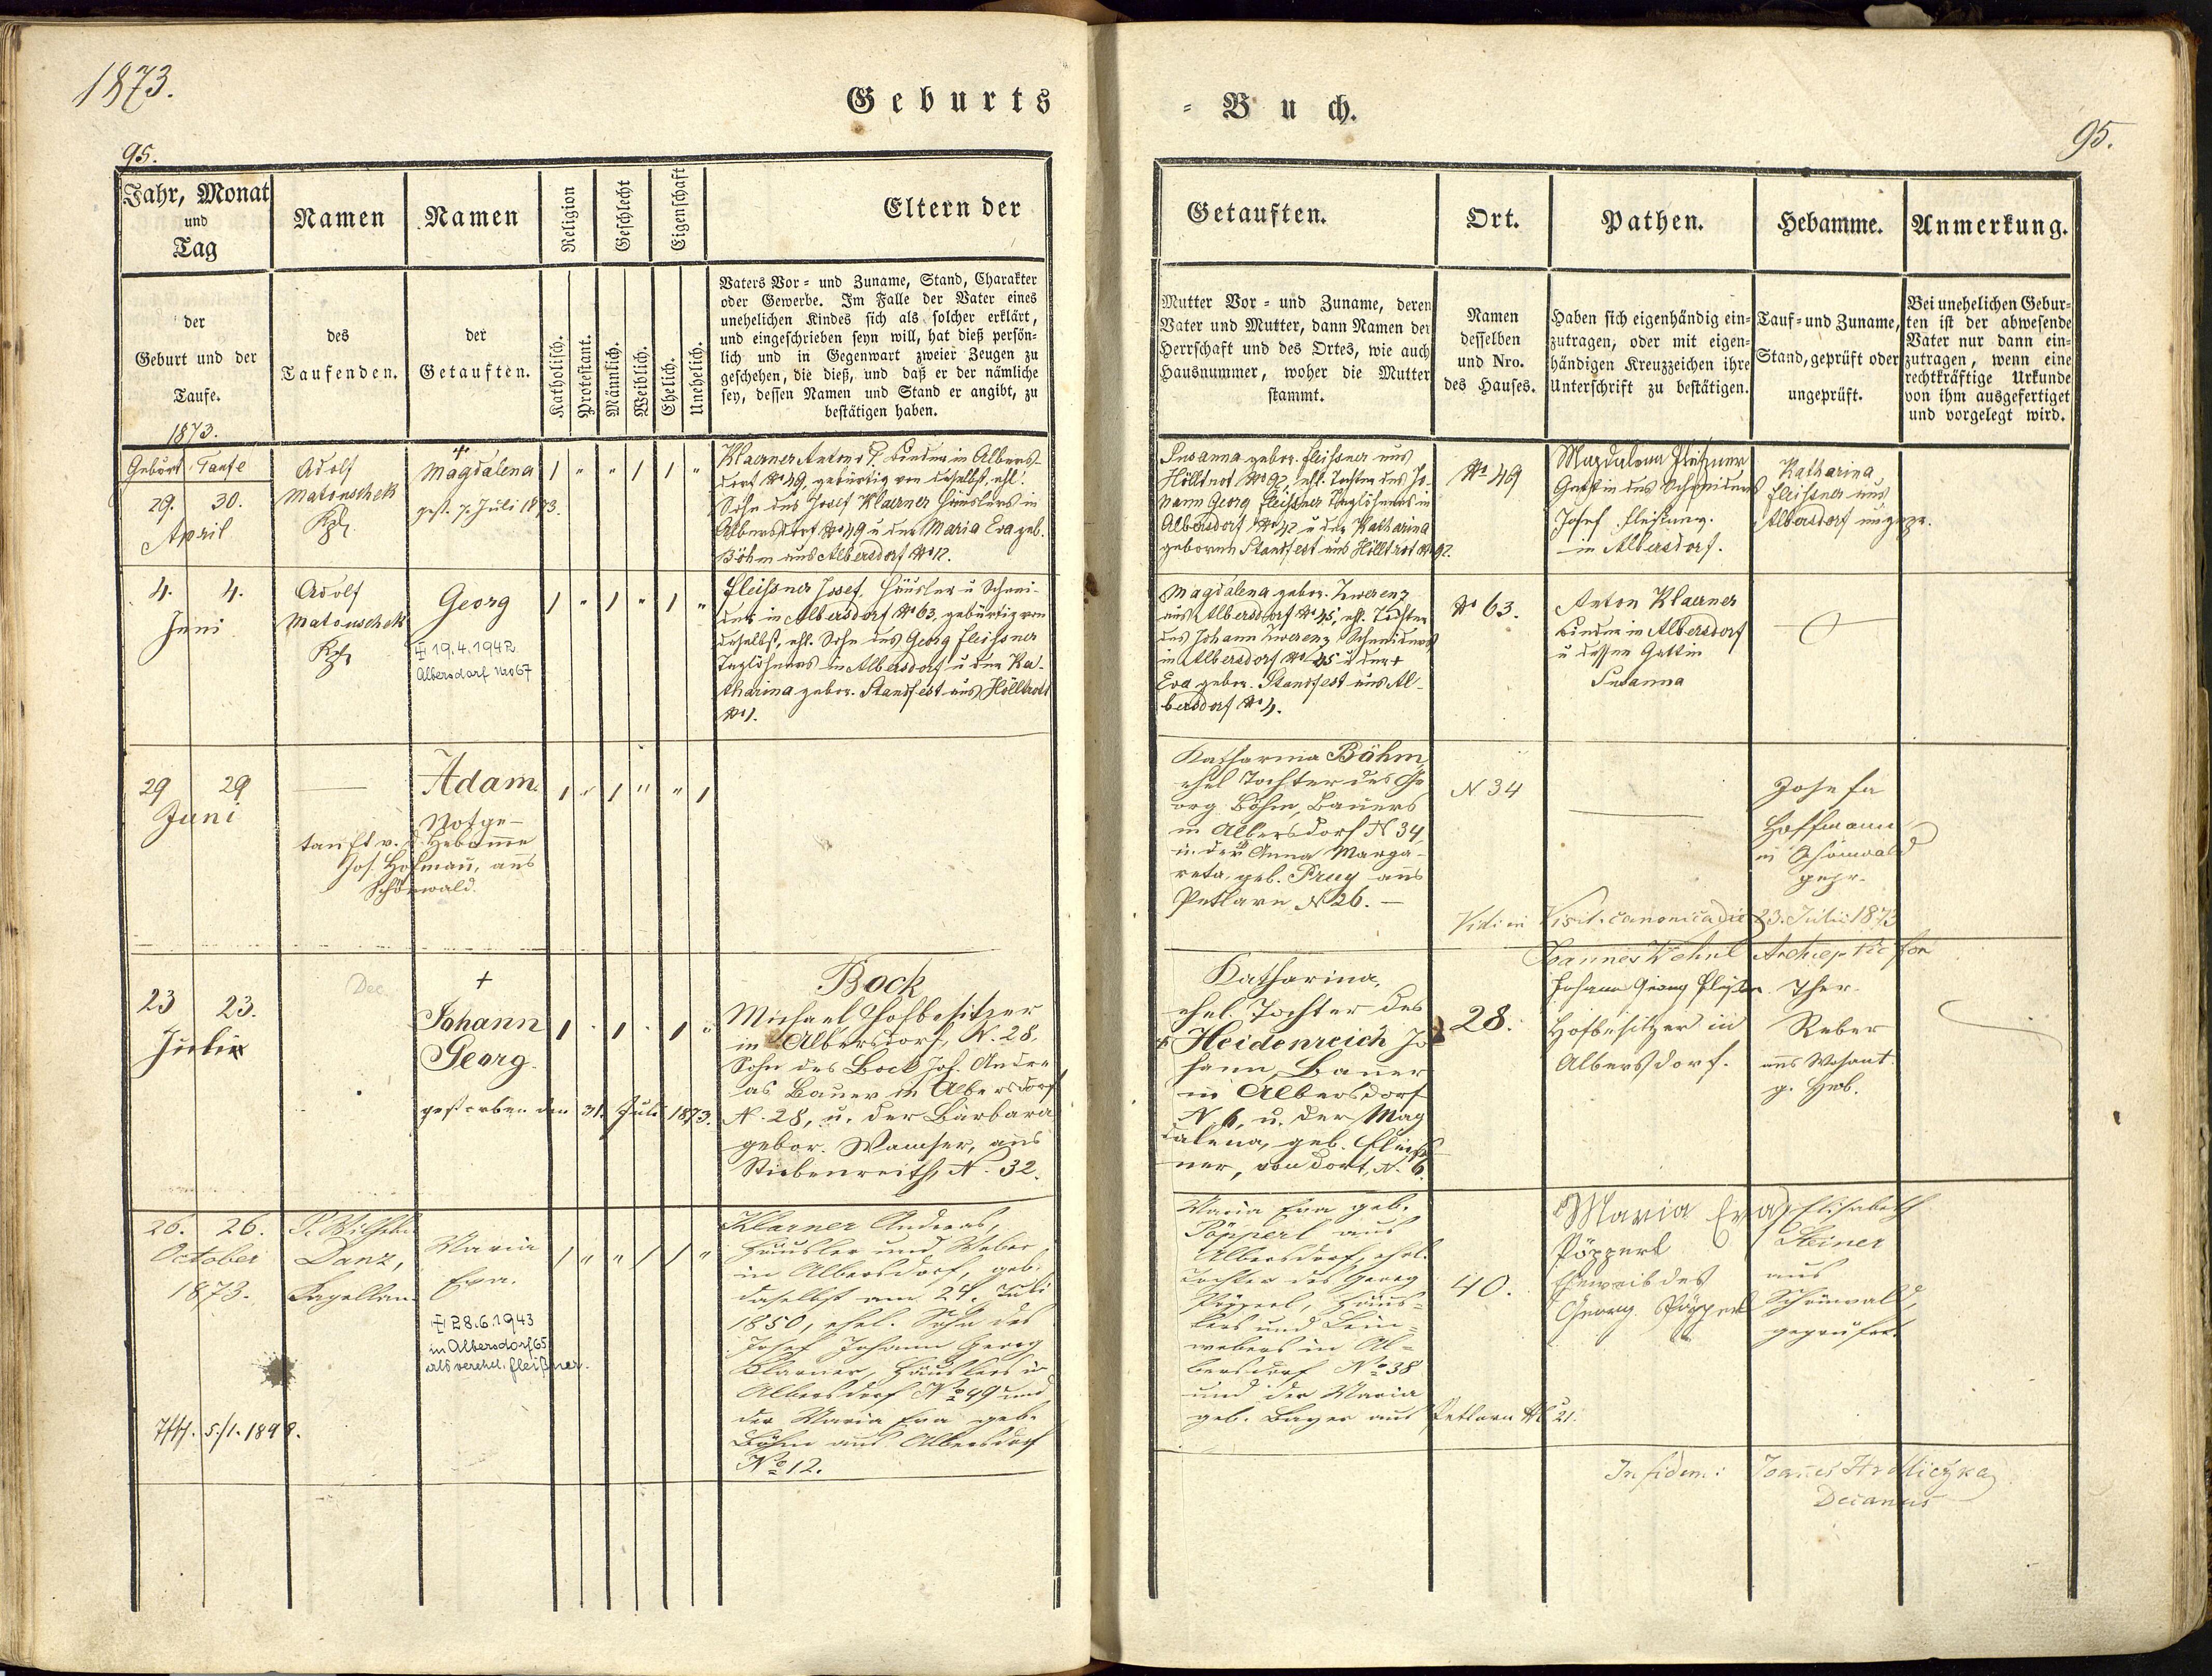 1873.
Geburts
95.
Jahr, Monat
und
Tag
Namen
Namen
Religion
Geschlecht
Eigenschaft
Eltern der
der
Geburt und der
Taufe.
1873.
des
Taufenden.
der
Getauften.
Katholisch.
Protestant.
Männlich.
Weiblich.
Ehelich.
Unehelich.
Vaters Vor- und Zuname, Stand, Charakter
oder Gewerbe. Im Falle der Vater eines
unehelichen Kindes sich als solcher erklärt,
und eingeschrieben seyn will, hat dieß persön-
lich und in Gegenwart zweier Zeugen zu
geschehen, die dieß, und daß er der nämliche
sey, dessen Namen und Stand er angibt, zu
bestätigen haben.
Geburt Taufe
29. 30.
April
Adolf
Matouschek
Kpl.
+
Magdalena
gest. 7. Juli 1873.
1 " " 1 1 "
Klaerner Anton Binder in Albers-
dorf No 49, gebürtig von daselbst, ehl.
Sohn des Josef Klaerner Häuslers in
Albersdorf No 49 u der Maria Eva geb.
Böhm aus Albersdorf No 12.
4. 4.
Juni
Adolf
Matouschek
Kpl.
Georg
19.4.1942
Albersdorf Nro 67
1 " 1 " 1 "
Fleissner Josef, Häusler u Schnei-
der in Albersdorf No 63, gebürtig von
daselbst, ehl. Sohn des Georg Fleissner
Taglöhners in Albersdorf u der Ka-
tharina gebor. Standfest aus Hölltrott
No 1.
29 29
Juni
Adam.
Notge-
tauft v. d. Hebamme
Jos. Hofmañ, aus
Schönwald.
1 " 1 " " 1
23 23.
Juli
Dec.
+
Johann
Georg.
gestorben den 31. Juli 1873.
1 " 1 " 1 "
Bock
Michael Hofbesitzer
in Albersdorf, N. 28,
Sohn des Bock Joh. Andre-
as Bauer in Albersdorf
N. 28, u. der Barbara
gebor. Wamser, aus
Stiebenreith, N. 32.
26. 26.
October
1873.
P. Wilhelm
Danz,
Kapellan
Maria
Eva.
28.6.1943
in Albersdorf 65
als verehel. Fleißner.
1 " " 1 1 "
5./1. 1898.
Klarner Andreas,
Häusler und Weber
in Albersdorf, geb.
daselbst am 24. Juli
1850, ehel. Sohn des
Josef Johann Georg
Klarner, Häuslers in
Albersdorf No 49 und
der Maria Eva geb.
Böhm aus Albersdorf
No 12.
= Buch.
95.
Getauften.
Ort.
Pathen.
Hebamme.
Anmerkung.
Mutter Vor- und Zuname, deren
Vater und Mutter, dann Namen der
Herrschaft und des Ortes, wie auch
Hausnummer, woher die Mutter
stammt.
Namen
desselben
und Nro.
des Hauses.
Haben sich eigenhändig ein-
zutragen, oder mit eigen-
händigen Kreuzzeichen ihre
Unterschrift zu bestätigen.
Tauf- und Zuname,
Stand, geprüft oder
ungeprüft.
Bei unehelichen Gebur-
ten ist der abwesende
Vater nur dann ein-
zutragen, wenn eine
rechtkräftige Urkunde
von ihm ausgefertiget
und vorgelegt wird.
Susanna gebor. Fleissner aus
Hölltrot No 92, ehl. Tochter des Jo-
hann Georg Fleissner Taglöhners in
Albersdorf No 42 u der Katharina
gebornen Standfest aus Hölltrot No 92.
No 49
Magdalena Fleissner
Gattin des Schneiders
Josef Fleissner
in Albersdorf.
Katharina
Fleissner aus
Albersdorf ungepr.
Magdalena gebor. Zwerenz
aus Albersdorf No 45, ehl. Tochter
des Johann Zwerenz Schneiders
in Albersdorf No 45 u der +
Eva gebor. Standfest aus Al-
bersdorf No 4.
No 63.
Anton Klaerner
Binder in Albersdorf
u dessen Gattin
Susanna
Katharina Böhm,
ehel Tochter des Ge
org Böhm, Bauers
in Albersdorf N 34,
u. der Anna Marga-
reta, geb. Prug aus
Petlarn N 26. —
N 34
Josefa
Hoffmann
in Schönwald
gepr.
Vidi in Visit. canonica die 23. Julii 1873
Joannes Wehnl
Katharina,
ehel. Tochter des
Heidenreich Jo
hann, Bauer
in Albersdorf
N. 6, u. der Mag
dalena, geb. Fleiss
ner, von dort, N. 6.
28.
Johann Georg
Hofbesitzer in
Albersdorf.
Ther.
Reber
aus Wosant.
g. Heb.
Maria Eva geb.
Pöpperl aus
Albersdorf, ehel.
Tochter des Georg
Pöpperl, Häus-
lers und Lein-
webers in Al-
bersdorf No 38
und der Maria
geb. Bayer aus Petlarn No 21.
40.
Maria Eva
Pöpperl
Eheweib des
Georg Pöpperl
Elisabeth
Steiner
aus
Schönwald,
geprüfet.
In fidem: Joannes Hrdliczka
Decanus